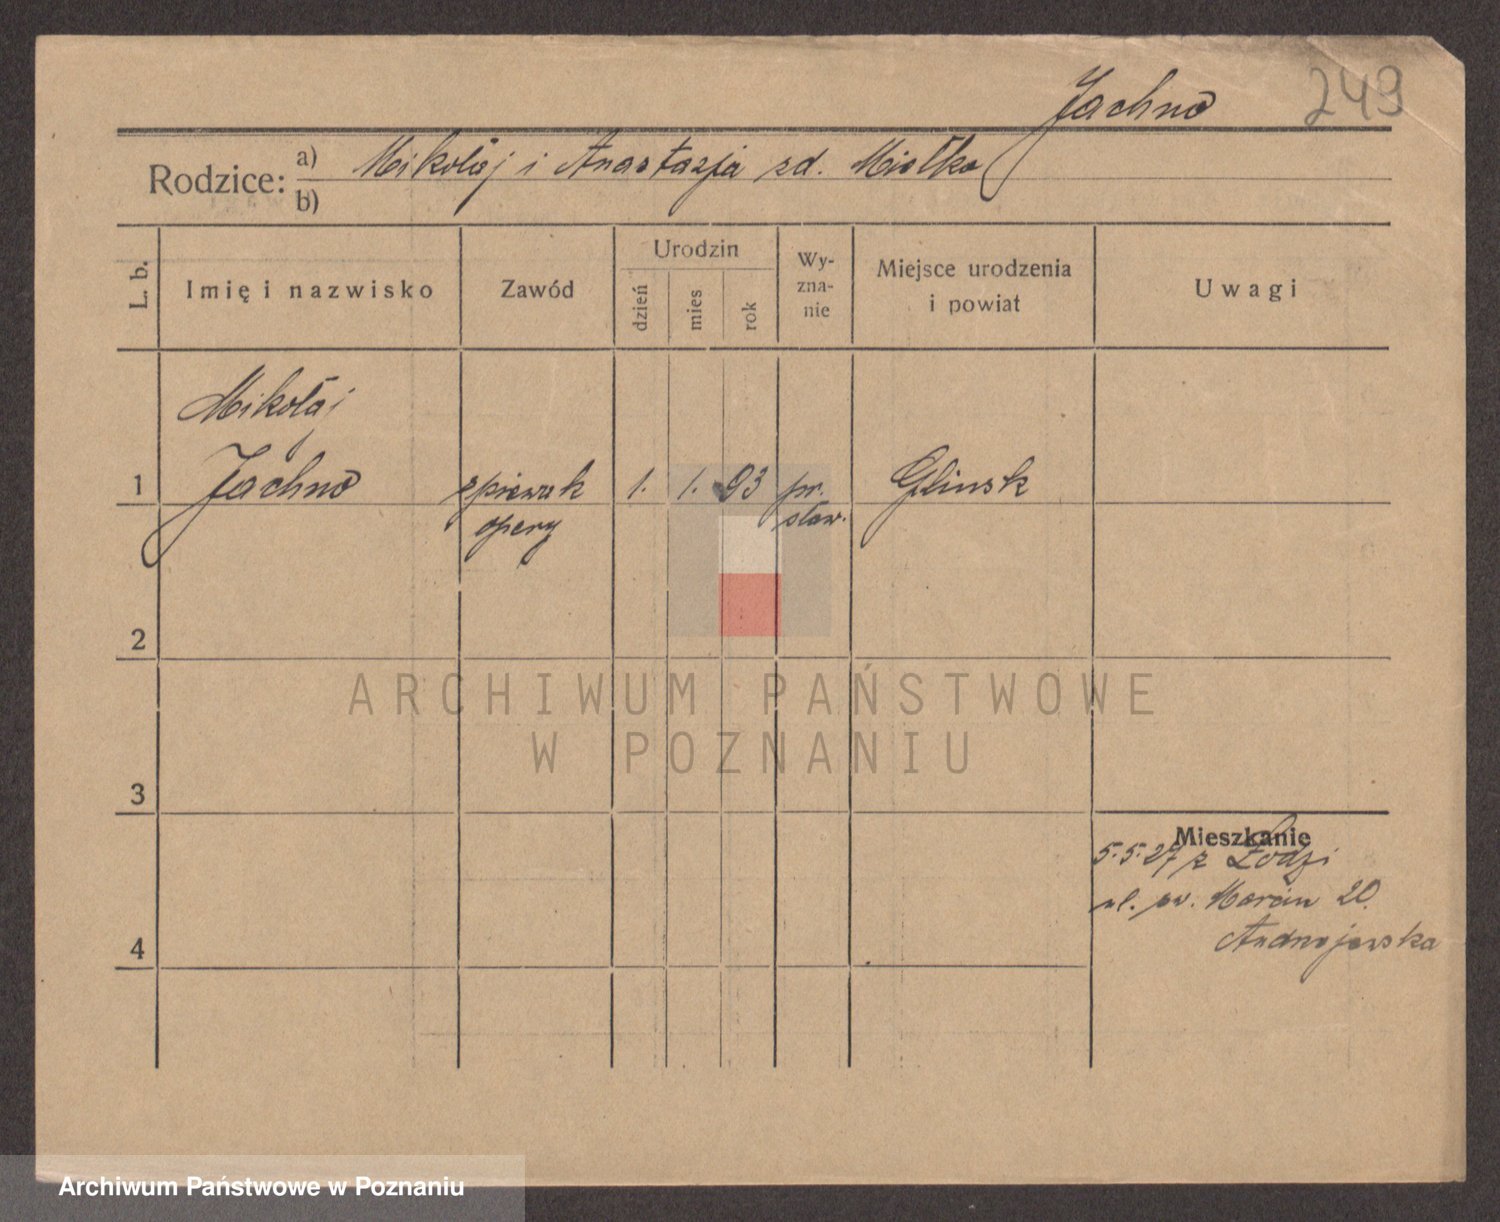 Jachno 249
Rodzice: a) Mikołaj i Anastazja zd. Miałko
b)
L. b. Imię i nazwisko Zawód Urodzin dzień mies rok Wyzna-nie Miejsce urodzenia i powiat Uwagi
Mikołaj
1 Jachno śpiewak 1. 1. 93 pr. Glinsk
opery sław.
2
ARCHIWUM PAŃSTWOWE
W POZNANIU
3
Mieszkanie
5.5.27 z Łodzi
ul. św. Marcin 20.
4
Archiwum Państwowe w Poznaniu